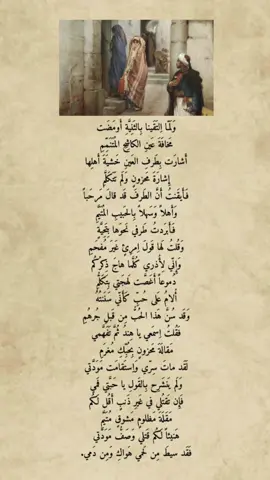 وَلَمّا اِلتَقَينا بِالثَنِيَّةِ أَومَضَت
مَخافَةَ عَينِ الكاشِحِ المُتَنَمِّمِ
أَشارَت بِطَرفِ العَينِ خَشيَةَ أَهلِها
إِشارَةَ مَحزونٍ وَلَم تَتَكَلَّمِ
فَأَيقَنتُ أَنَّ الطَرفَ قَد قالَ مَرحَباً
وَأَهلاً وَسَهلاً بِالحَبيبِ المُتَيَّمِ
فَأَبرَدتُ طَرفي نَحوَها بِتَحِيَّةٍ
وَقُلتُ لَها قَولَ اِمرِئٍ غَيرَ مُفحَمِ
وَإِنّي لَأُذري كُلَّما هاجَ ذِكرُكُم
دُموعاً أَغَصَّت لَهجَتي بِتَكَلُّمِ
أُلامُ عَلى حُبٍّ كَأَنّي سَنَنتُهُ
وَقَد سُنَّ هَذا الحُبُّ مِن قَبلِ جُرهُمِ
فَقُلتُ اِسمَعي يا هِندُ ثُمَّ تَفَهَّمي
مَقالَةَ مَحزونٍ بِحُبِّكِ مُغرَمِ
لَقَد ماتَ سِرّي وَاِستَقامَت مَوَدَّتي
وَلَم يَنشَرِح بِالقَولِ يا حِبَّتي فَمي
فَإِن تَقتُلي في غَيرِ ذَنبٍ أَقُل لَكُم
مَقالَةَ مَظلومٍ مَشوقٍ مُتَيَّمِ
هَنيئاً لَكُم قَتلي وَصَفوُ مَوَدَّتي
فَقَد سيطَ مِن لَحمي هَواكِ وَمِن دَمي.